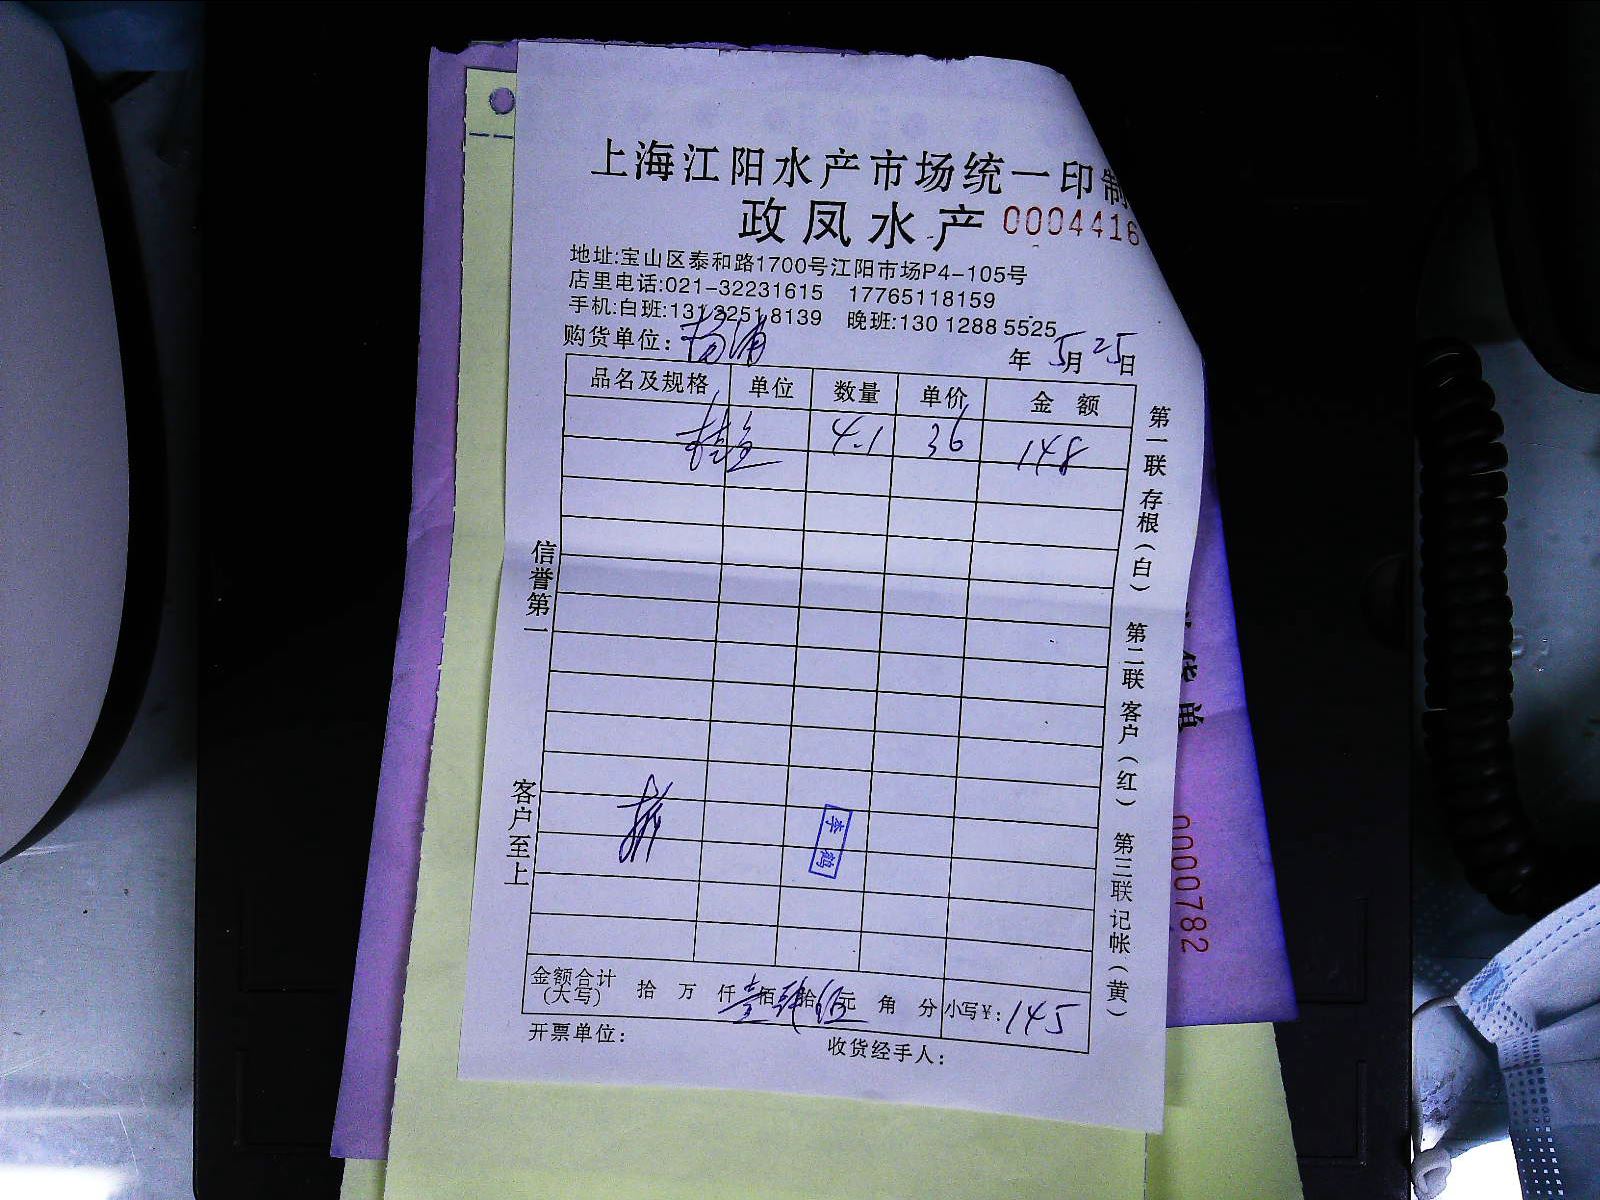 上海江阳水产市场统一印制
政凤水产 0004416
地址:宝山区泰和路1700号江阳市场P4-105号
店里电话:021-32231615 17765118159
手机:白班:131 2251 8139 晚班:130 1288 5525
购货单位: 杨浦
年 5月25日
品名及规格 单位 数量 单价 金额
桂鱼 4.1 36 148
信誉第一
客户至上
李鹤
第一联 存根(白) 第二联 客户(红) 第三联 记帐(黄)
金额合计(大写) 拾 万 仟 壹佰肆拾伍元 角 分 小写¥: 145
开票单位: 收货经手人:
货单
0000782